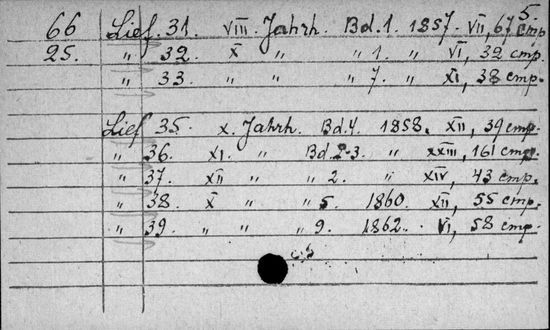 5.
66 Lief. 31. VIII. Jahrh. Bd. 1. 1857. VII, 67 стр.
25. " 32. X " " 1. " VI, 32 стр.
" 33. " " " 7. " XI, 38 стр.
Lief 35. X. Jahrh. Bd. 4. 1858. XII, 39 стр.
" 36. XI. " Bd. 2-3. " XXIII, 161 стр.
" 37. XII " " 2. " XIV, 43 стр.
" 38. X " " 5. 1860. XII, 55 стр.
" 39. " " " 9. 1862. VI, 58 стр.